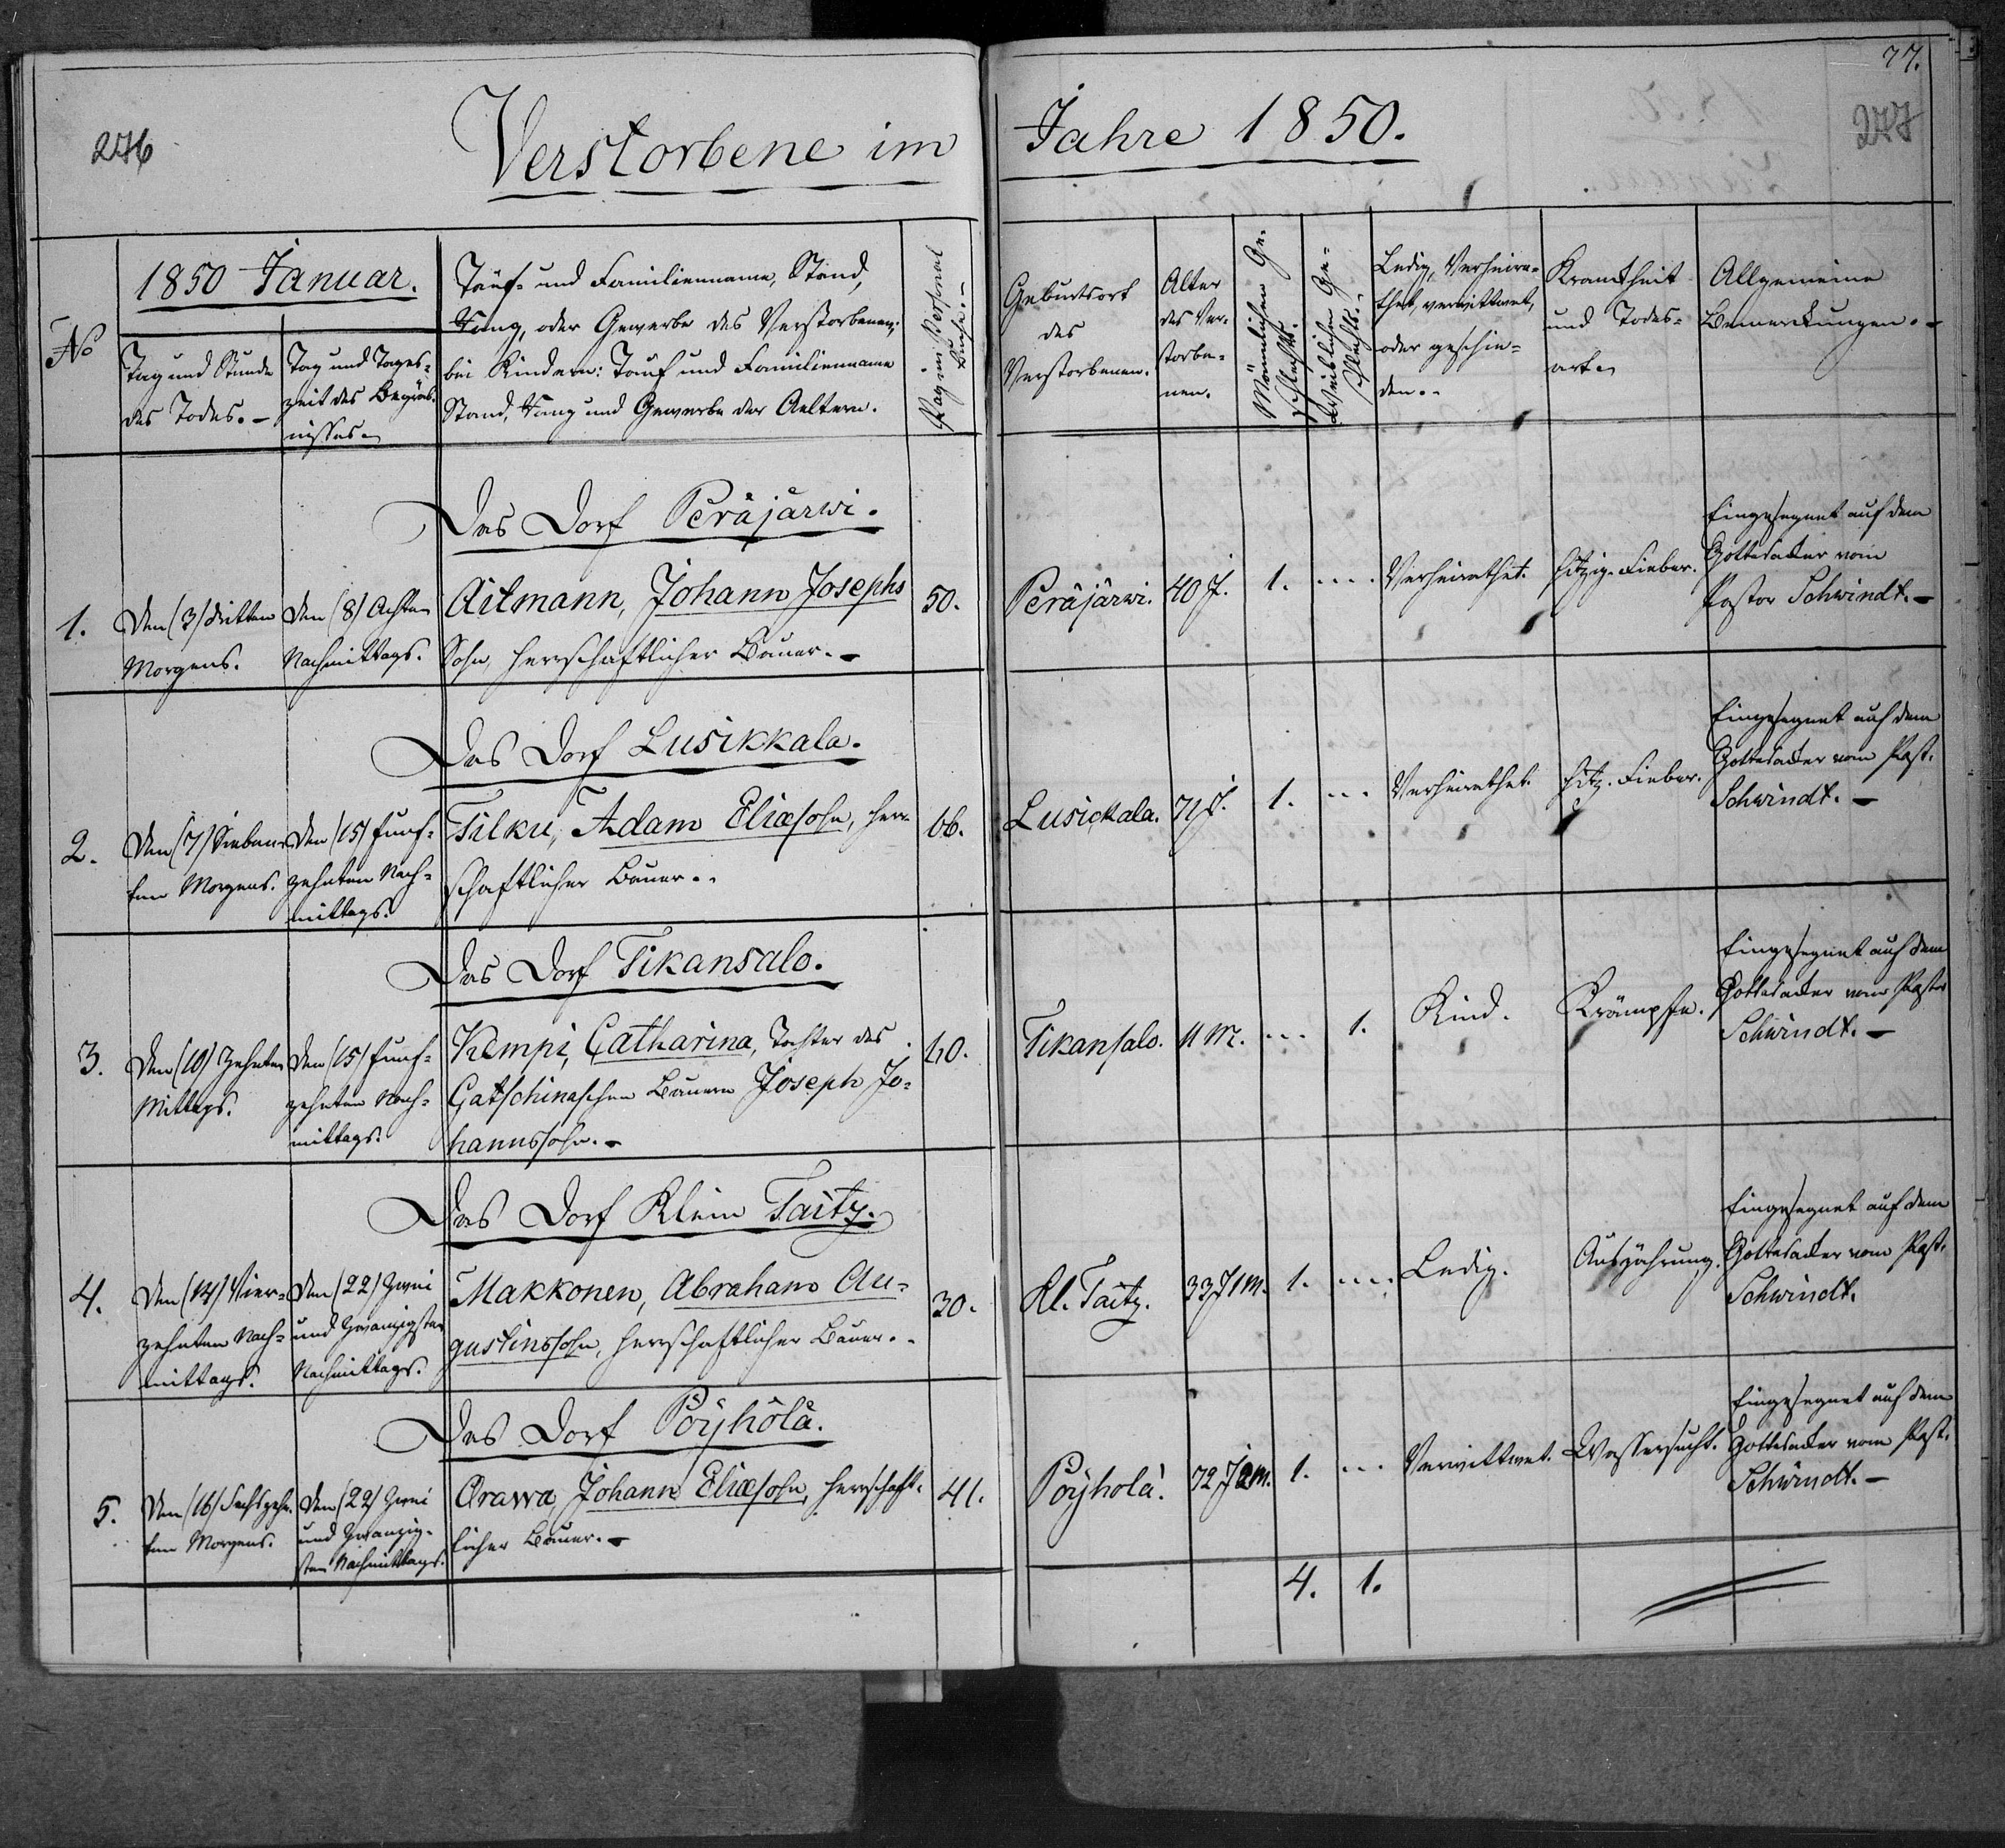 276
Verstorbene im
Jahre 1850.
77.
277
No
1850 Januar.
Tag und Stunde
des Todes. -
Tag und Tages-
zeit des Begräb-
nisses.
Tauf- und Familienname, Stand,
Rang, oder Gewerbe des Verstorbenen;
bei Kindern: Tauf und Familienname
Stand, Rang und Gewerbe der Aeltern.
Pag. im Personal
Buche. -
Geburtsort
des
Verstorbenen.
Alter
des Ver-
storbe-
nen.
Männlichen Ge-
schlechts.
Weiblichen Ge-
schlechts.
Ledig, Verheira-
thet, verwittwet,
oder geschie-
den. -
Krankheit
und Todes-
art.
Allgemeine
Bemerkungen. -
Das Dorf Peräjärwi.
1.
Den (3) dritten
Morgens.
Den (8) Achten
Nachmittags.
Aitmann, Johann Josephs
Sohn, herrschaftlicher Bauer. -
50.
Peräjärwi.
40 J.
1.
Verheirathet.
hitzig. Fieber.
Eingesegnet auf dem
Gottesacker vom
Pastor Schwindt. -
Das Dorf Lusikkala.
2.
Den (7) Sieben-
ten Morgens.
Den (15) funf-
zehnten Nach-
mittags.
Tilku, Adam Eliæsohn, herr-
schaftlicher Bauer. -
66.
Lusickala.
71 J.
1.
Verheirathet.
hitz. Fieber.
Eingesegnet auf dem
Gottesacker vom Past.
Schwindt. -
Das Dorf Tikansalo.
3.
Den (10) Zehnten
Mittags.
Den (15) funf-
zehnten Nach-
mittags.
Kempi, Catharina, Tochter des
Gatschinaschen Bauern Joseph Jo-
hannssohn. -
40.
Tikansalo.
11 M.
1.
Kind.
Krämpfe.
Eingesegnet auf dem
Gottesacker vom Pastor
Schwindt. -
Das Dorf Klein Taitz.
4.
Den (14) Vier-
zehnten Nach-
mittags.
Den (22) Zwei
und Zwanzigsten
Nachmittags.
Makkonen, Abraham Au-
gustinssohn, herrschaftlicher Bauer. -
30.
Kl. Taitz.
33 J 1 M.
1.
Ledig.
Auszehrung.
Eingesegnet auf dem
Gottesacker vom Past.
Schwindt.
Das Dorf Pöyhölä.
5.
Den (16) Sechszehn-
ten Morgens.
Den (22) Zwei
und Zwanzig-
sten Nachmittags.
Orawa, Johann Eliæsohn, herrschaft-
licher Bauer. -
41.
Pöyholä.
72 J 2 M.
1.
Verwittwet.
Wassersucht.
Eingesegnet auf dem
Gottesacker vom Past.
Schwindt. -
4.
1.